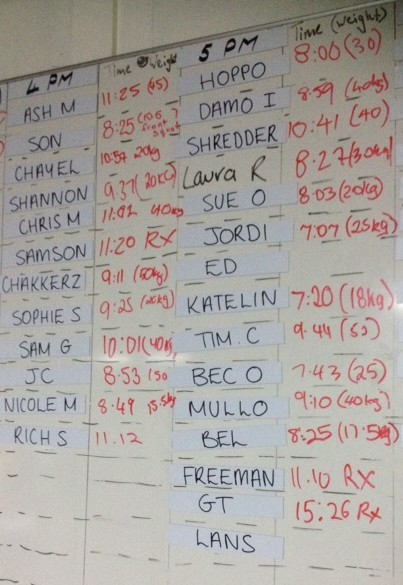 4 PM Time weight
ASH M 11:25 (45)
SON 8:25 (10.5
CHAYEL 10:57 20kg
SHANNON 9.37 (20KG)
CHRIS M 11.02 40kg
SAMSON 11:20 RX
CHAKKERZ 9:11 (50kg)
SOPHIE S 9:25 (20kg)
SAM G 10:01 (40kg
JC 8:53 (50
NICOLE M 8:49 15.5kg
RICH S 11.12
5 PM Time (weight)
HOPPO 8:00 (30)
DAMO I 8:59 (40kg)
SHREDDER 10:41 (40)
Laura R 8:27 (30kg)
SUE O 8:03 (20kg)
JORDI 7:07 (25kg)
ED
KATELIN 7:20 (18kg)
TIM. C 9.44 (50)
BEC O 7.43 (25)
MULLO 9:10 (40kg)
BEL 8:25 (17.5kg)
FREEMAN 11.10 RX
GT 15:26 Rx
LANS